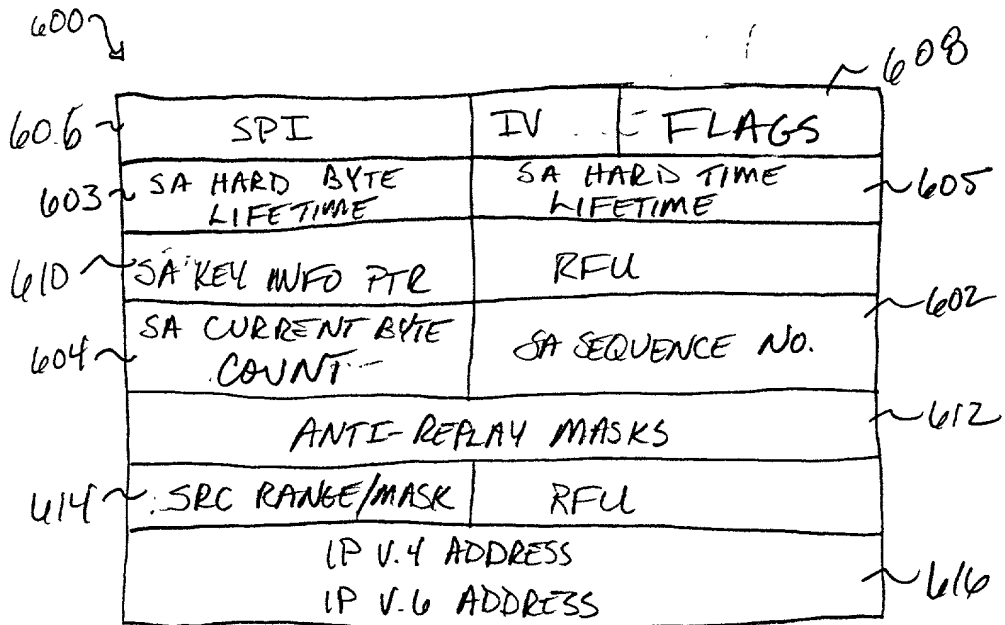 600
608
606 SPI IV FLAGS
603 SA HARD BYTE LIFETIME SA HARD TIME LIFETIME 605
610 SA KEY INFO PTR RFU
602
604 SA CURRENT BYTE COUNT SA SEQUENCE NO.
ANTI-REPLAY MASKS 612
614 SRC RANGE/MASK RFU
IP V.4 ADDRESS
IP V.6 ADDRESS 616